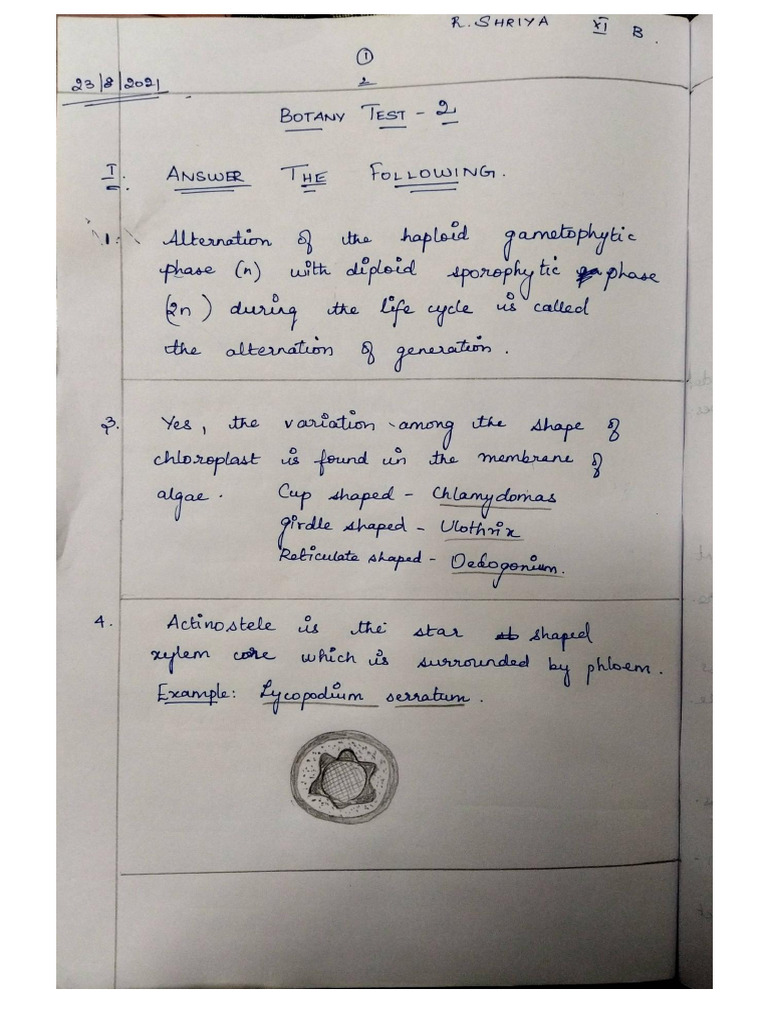 R. SHRIYA XI B.
①
23/8/2021
BOTANY TEST - 2
I. ANSWER THE FOLLOWING.
1. Alternation of the haploid gametophytic
phase (n) with diploid sporophytic phase
(2n) during the life cycle is called
the alternation of generation.
3. Yes, the variation among the shape of
chloroplast is found in the membrane of
algae. Cup shaped - Chlamydomas
Girdle shaped - Ulothrix
Reticulate shaped - Oedogonium.
4. Actinostele is the star shaped
xylem core which is surrounded by phloem.
Example: Lycopodium serratum.